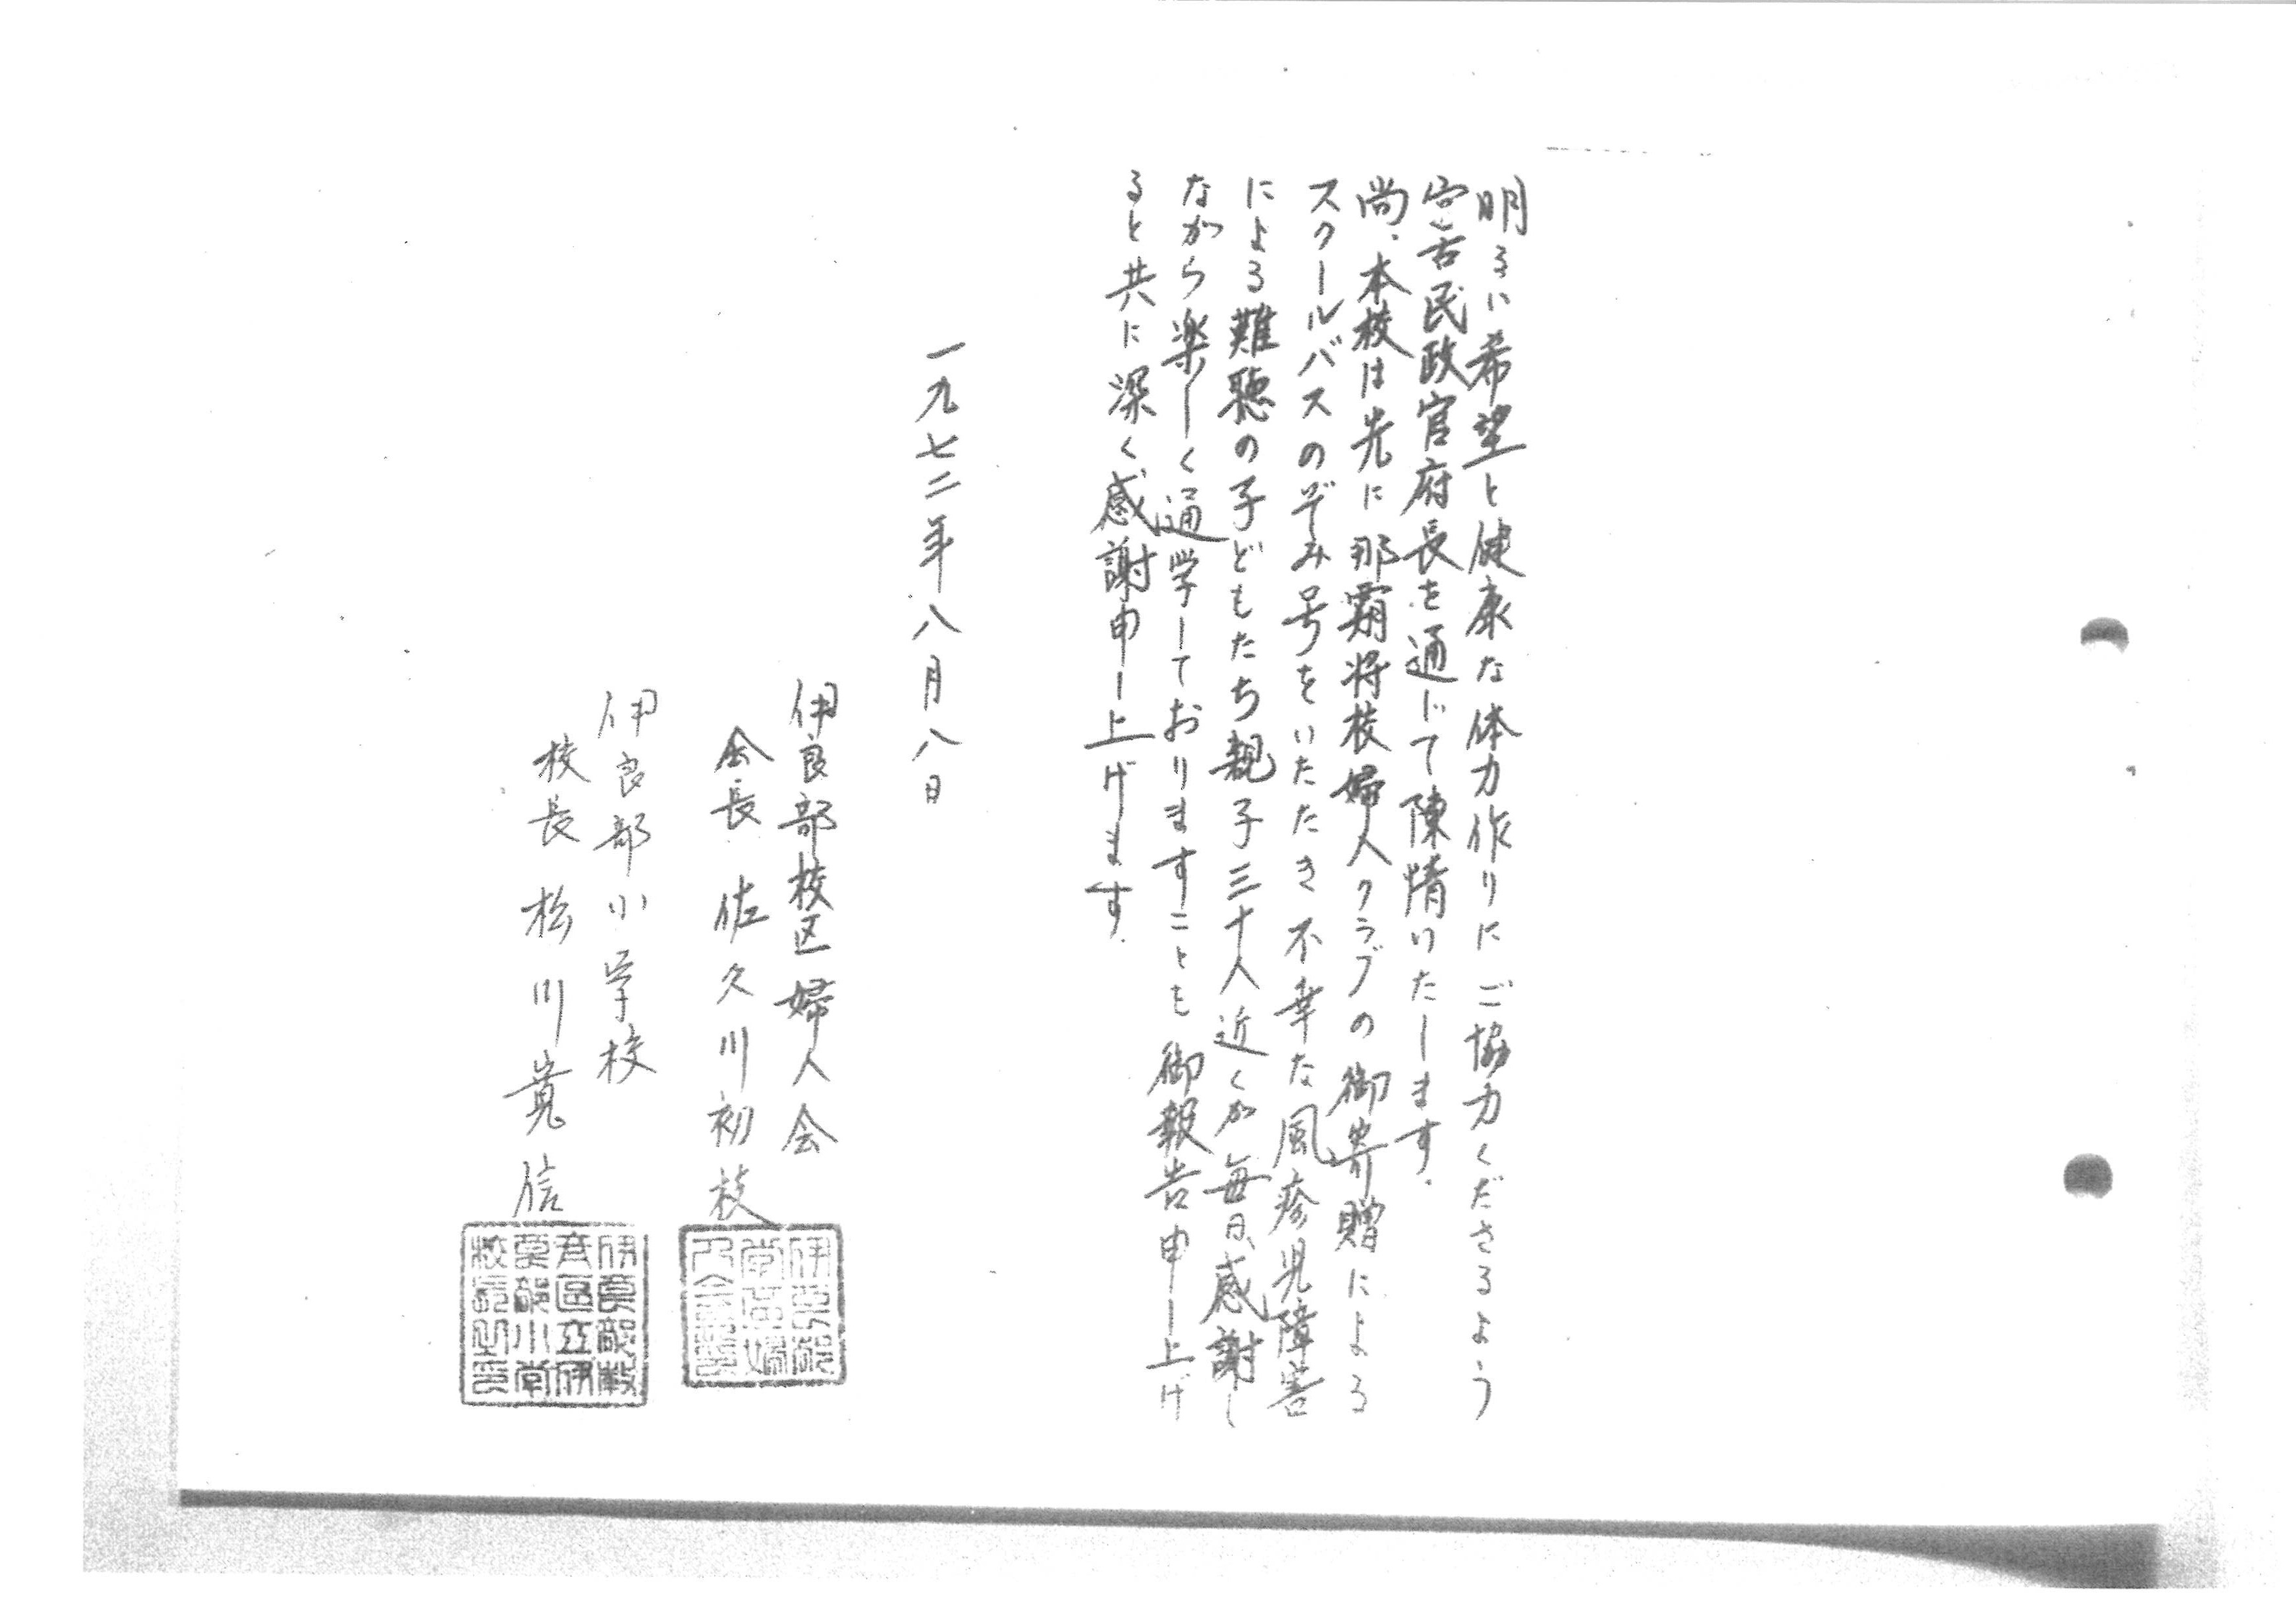 明るい希望と健康な体力作りにご協力くださるよう
宮古民政官府長を通じて陳情いたします.
尚、本校は先に那覇将校婦人クラブの御寄贈による
スクールバスのぞみ号をいたたき不幸な風疹児障害
による難聴の子どもたち親子三十人近くが毎日、感謝し
ながら楽しく通学しておりますことも御報告申し上げ
ると共に深く感謝申し上げます.
一九七二年八月八日
伊良部校区婦人会
会長 佐久川初枝
伊良部小学校
校長 松川寛信
伊良部教
育區立伊
良部小学
校長之印